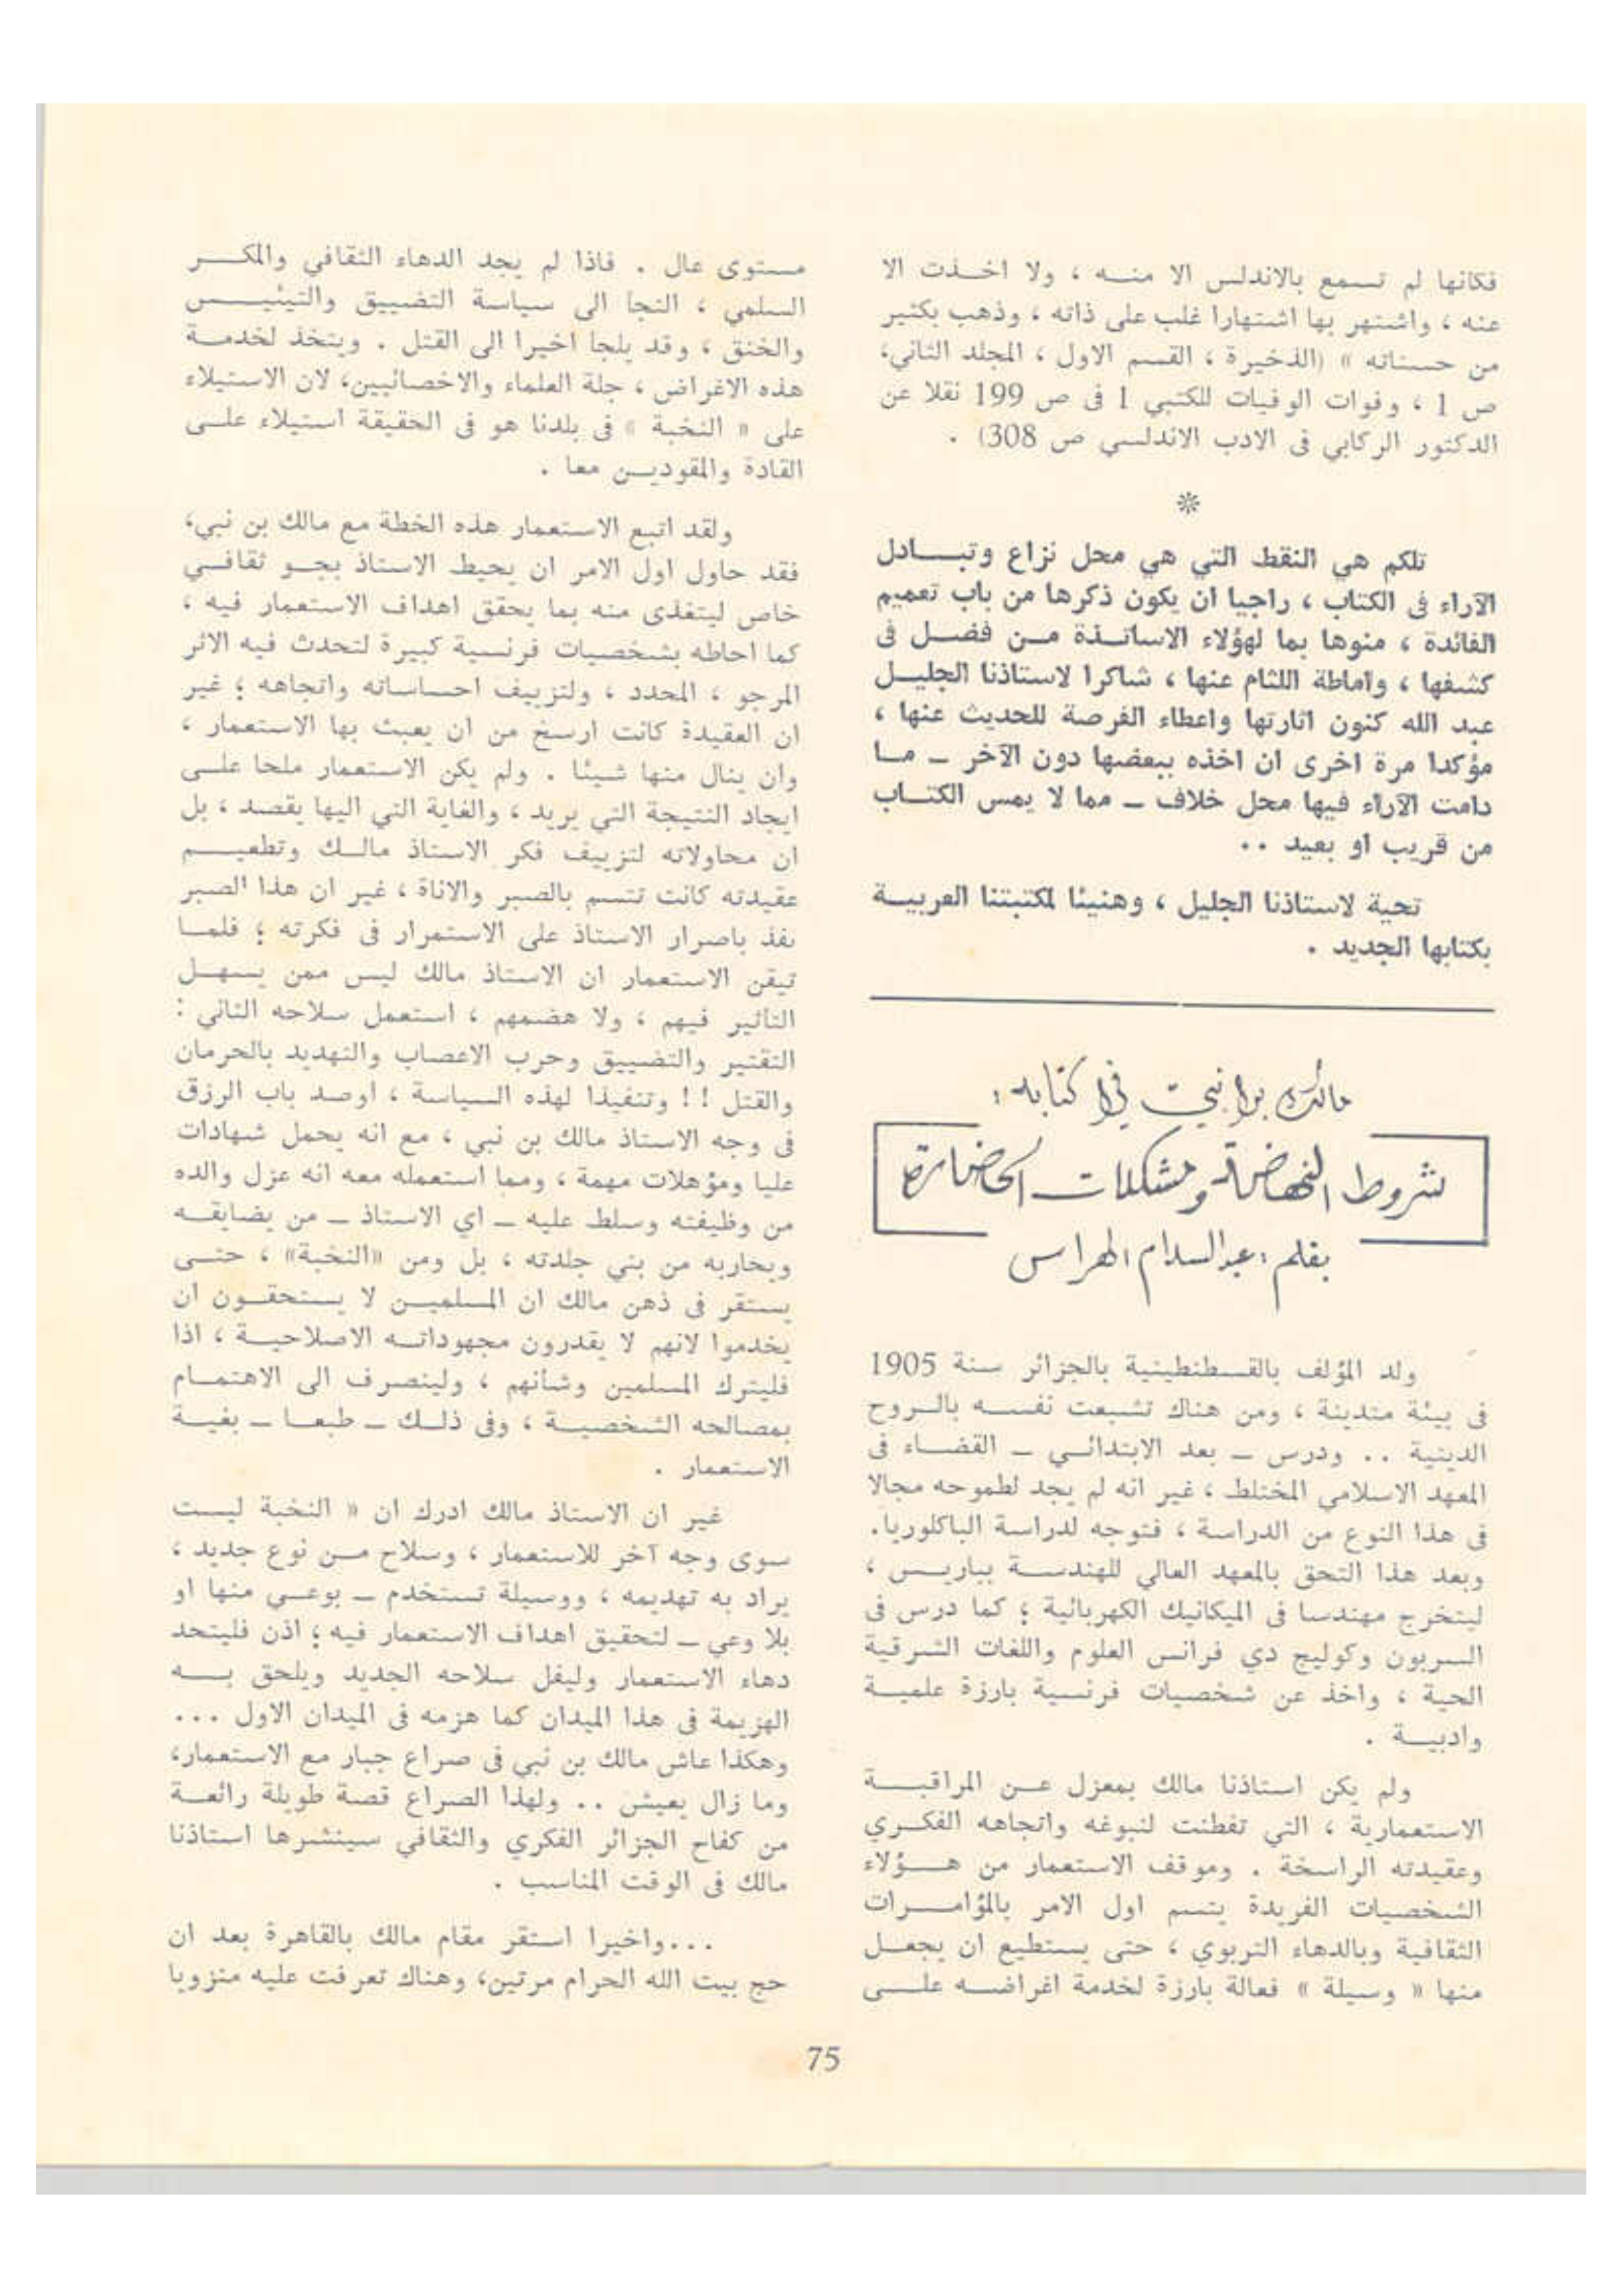 فكانها لم تسمع بالاندلس الا منه ، ولا اخذت الا
عنه ، واشتهر بها اشتهارا غلب على ذاته ، وذهب بكثير
من حسناته » (الذخيرة ، القسم الاول ، المجلد الثاني،
ص 1 ، وفوات الوفيات للكتبي 1 فى ص 199 نقلا عن
الدكتور الركابي فى الادب الاندلسي ص 308) .
*
تلكم هي النقط التي هي محل نزاع وتبادل
الآراء فى الكتاب ، راجيا ان يكون ذكرها من باب تعميم
الفائدة ، منوها بما لهؤلاء الاساتذة من فضل فى
كشفها ، واماطة اللثام عنها ، شاكرا لاستاذنا الجليل
عبد الله كنون اثارتها واعطاء الفرصة للحديث عنها ،
مؤكدا مرة اخرى ان اخذه ببعضها دون الآخر ــ ما
دامت الآراء فيها محل خلاف ــ مما لا يمس الكتاب
من قريب او بعيد ..
تحية لاستاذنا الجليل ، وهنيئا لمكتبتنا العربية
بكتابها الجديد .
مالك بن نبي في كتابه :
شروط النهضة ومشكلات الحضارة
بقلم : عبد السلام الهراس
ولد المؤلف بالقسطنطينية بالجزائر سنة 1905
فى بيئة متدينة ، ومن هناك تشبعت نفسه بالروح
الدينية .. ودرس ــ بعد الابتدائي ــ القضاء فى
المعهد الاسلامي المختلط ، غير انه لم يجد لطموحه مجالا
فى هذا النوع من الدراسة ، فتوجه لدراسة الباكلوريا.
وبعد هذا التحق بالمعهد العالي للهندسة بباريس ،
ليتخرج مهندسا فى الميكانيك الكهربائية ؛ كما درس فى
السربون وكوليج دي فرانس العلوم واللغات الشرقية
الحية ، واخذ عن شخصيات فرنسية بارزة علمية
وادبية .
ولم يكن استاذنا مالك بمعزل عن المراقبة
الاستعمارية ، التي تفطنت لنبوغه واتجاهه الفكري
وعقيدته الراسخة . وموقف الاستعمار من هؤلاء
الشخصيات الفريدة يتسم اول الامر بالمؤامرات
الثقافية وبالدهاء التربوي ، حتى يستطيع ان يجعل
منها « وسيلة » فعالة بارزة لخدمة اغراضه على
مستوى عال . فاذا لم يجد الدهاء الثقافي والمكر
السلمي ، التجا الى سياسة التضييق والتيئيس
والخنق ، وقد يلجا اخيرا الى القتل . ويتخذ لخدمة
هذه الاغراض ، جلة العلماء والاخصائيين، لان الاستيلاء
على « النخبة » فى بلدنا هو فى الحقيقة استيلاء على
القادة والمقودين معا .
ولقد اتبع الاستعمار هذه الخطة مع مالك بن نبي،
فقد حاول اول الامر ان يحيط الاستاذ بجو ثقافي
خاص ليتغذى منه بما يحقق اهداف الاستعمار فيه ،
كما احاطه بشخصيات فرنسية كبيرة لتحدث فيه الاثر
المرجو ، المحدد ، ولتزييف احساساته واتجاهه ؛ غير
ان العقيدة كانت ارسخ من ان يعبث بها الاستعمار ،
وان ينال منها شيئا . ولم يكن الاستعمار ملحا على
ايجاد النتيجة التي يريد ، والغاية التي اليها يقصد ، بل
ان محاولاته لتزييف فكر الاستاذ مالك وتطعيم
عقيدته كانت تتسم بالصبر والاناة ، غير ان هذا الصبر
نفذ باصرار الاستاذ على الاستمرار فى فكرته ؛ فلما
تيقن الاستعمار ان الاستاذ مالك ليس ممن يسهل
التأثير فيهم ، ولا هضمهم ، استعمل سلاحه الثاني :
التقتير والتضييق وحرب الاعصاب والتهديد بالحرمان
والقتل !! وتنفيذا لهذه السياسة ، اوصد باب الرزق
فى وجه الاستاذ مالك بن نبي ، مع انه يحمل شهادات
عليا ومؤهلات مهمة ، ومما استعمله معه انه عزل والده
من وظيفته وسلط عليه ــ اي الاستاذ ــ من يضايقه
ويحاربه من بني جلدته ، بل ومن «النخبة» ، حتى
يستقر فى ذهن مالك ان المسلمين لا يستحقون ان
يخدموا لانهم لا يقدرون مجهوداته الاصلاحية ، اذا
فليترك المسلمين وشأنهم ، ولينصرف الى الاهتمام
بمصالحه الشخصية ، وفى ذلك ــ طبعا ــ بغية
الاستعمار .
غير ان الاستاذ مالك ادرك ان « النخبة ليست
سوى وجه آخر للاستعمار ، وسلاح من نوع جديد ،
يراد به تهديمه ، ووسيلة تستخدم ــ بوعي منها او
بلا وعي ــ لتحقيق اهداف الاستعمار فيه ؛ اذن فليتحد
دهاء الاستعمار وليفل سلاحه الجديد ويلحق به
الهزيمة فى هذا الميدان كما هزمه فى الميدان الاول ...
وهكذا عاش مالك بن نبي فى صراع جبار مع الاستعمار،
وما زال يعيش .. ولهذا الصراع قصة طويلة رائعة
من كفاح الجزائر الفكري والثقافي سينشرها استاذنا
مالك فى الوقت المناسب .
...واخيرا استقر مقام مالك بالقاهرة بعد ان
حج بيت الله الحرام مرتين، وهناك تعرفت عليه منزويا
75